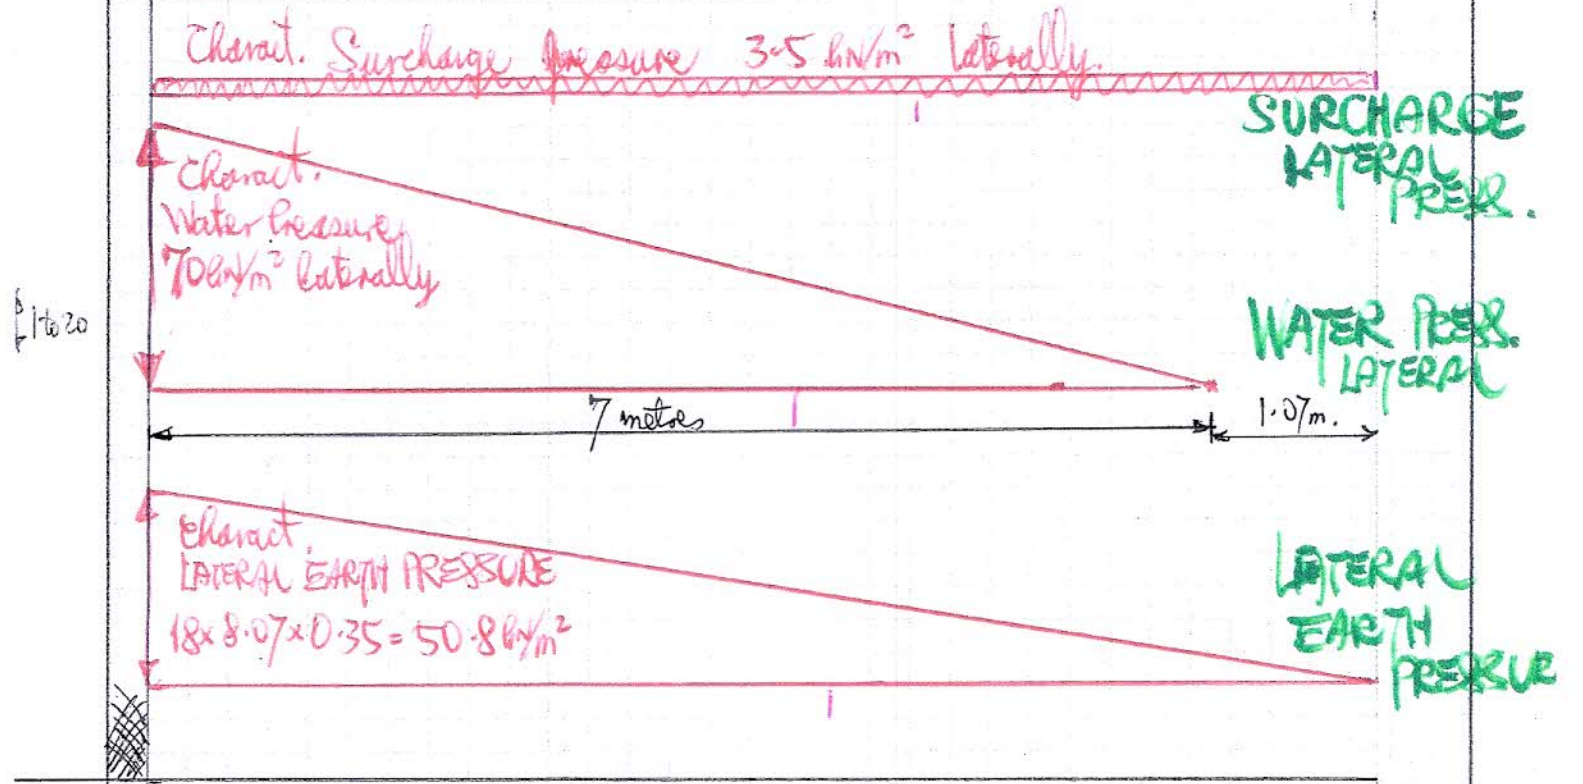 Charact. Surcharge pressure 3.5 kN/m² laterally.
SURCHARGE
LATERAL
PRESS.
Charact.
Water Pressure
70kN/m² laterally
1 to 20
WATER PRESS.
LATERAL
7 metres
1.07m.
Charact.
LATERAL EARTH PRESSURE
18x8.07x0.35=50.8kN/m²
LATERAL
EARTH
PRESSUR